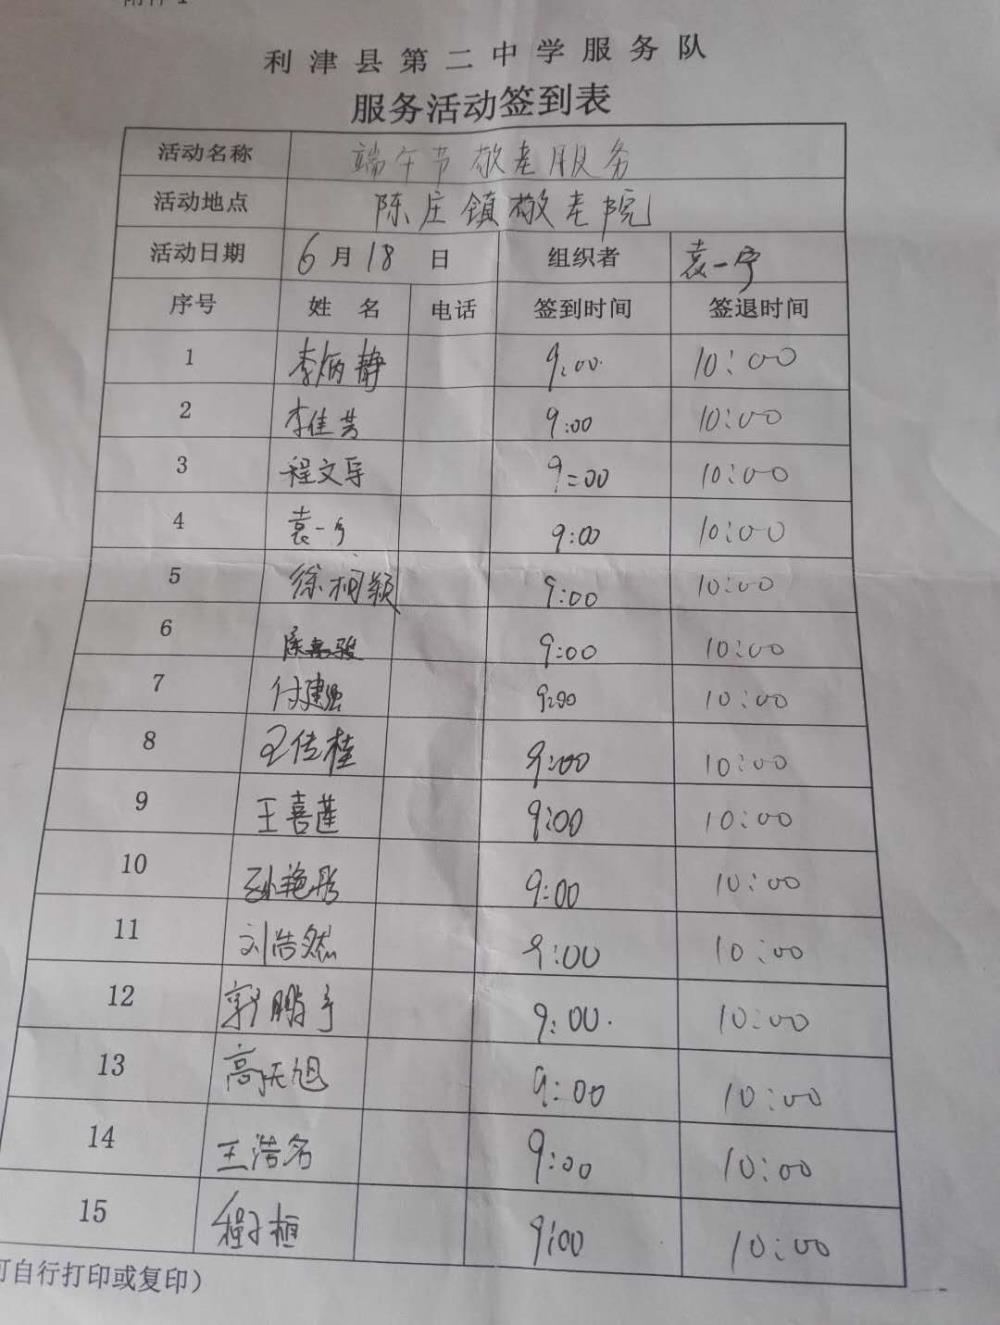 利津县第二中学服务队
服务活动签到表
活动名称 端午节敬老服务
活动地点 陈庄镇敬老院
活动日期 6月18日 组织者 袁一宁
序号 姓名 电话 签到时间 签退时间
1 李炳静 9:00 10:00
2 李佳芸 9:00 10:00
3 程文导 9:00 10:00
4 袁一宁 9:00 10:00
5 徐柯颖 9:00 10:00
6 9:00 10:00
7 付建强 9:00 10:00
8 王传桂 9:00 10:00
9 王喜莲 9:00 10:00
10 孙艳彤 9:00 10:00
11 刘浩然 9:00 10:00
12 郭鹏宇 9:00 10:00
13 高天旭 9:00 10:00
14 王浩名 9:00 10:00
15 程子桓 9:00 10:00
可自行打印或复印）